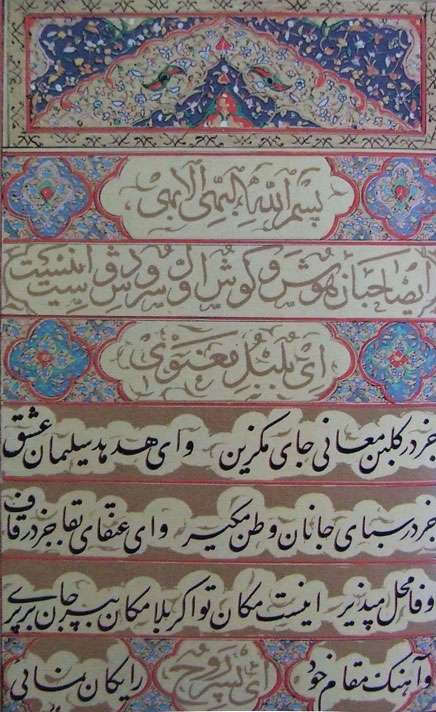 بسم اللّه البهی الابهی
ایصاحبان هوش و گوش اول سروش دوست اینست
ای بلبل معنوی
جز در گلبن معانی جای مگزین و ای هدهد سلیمان عشق
جز در سبای جانان وطن مگیر و ای عنقای بقا جز در قاف
وفا محل مپذیر اینست مکان تو اگر بلامکان بپر جان برپری
و آهنگ مقام خود ای پسر روح رایگان نمائی